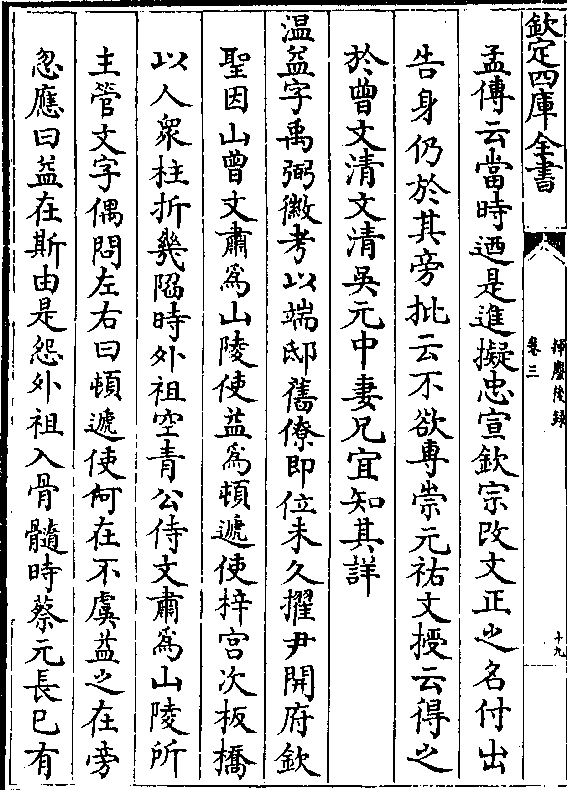 欽定四庫全書
揮麈後錄
卷三
十九
孟傳云當時廼是進擬忠宣欽宗改文正之名付出
告身仍於其旁批云不欲專崇元祐文授云得之
於曾文清文清吳元中妻兄宜知其詳
温益字禹弼徽考以端邸舊僚即位未久擢尹開府欽
聖因山曾文肅為山陵使益為頓遞使梓宮次板橋
以人衆柱折幾陷時外祖空青公侍文肅為山陵所
主管文字偶問左右曰頓遞使何在不虞益之在旁
忽應曰益在斯由是怨外祖入骨髓時蔡元長已有